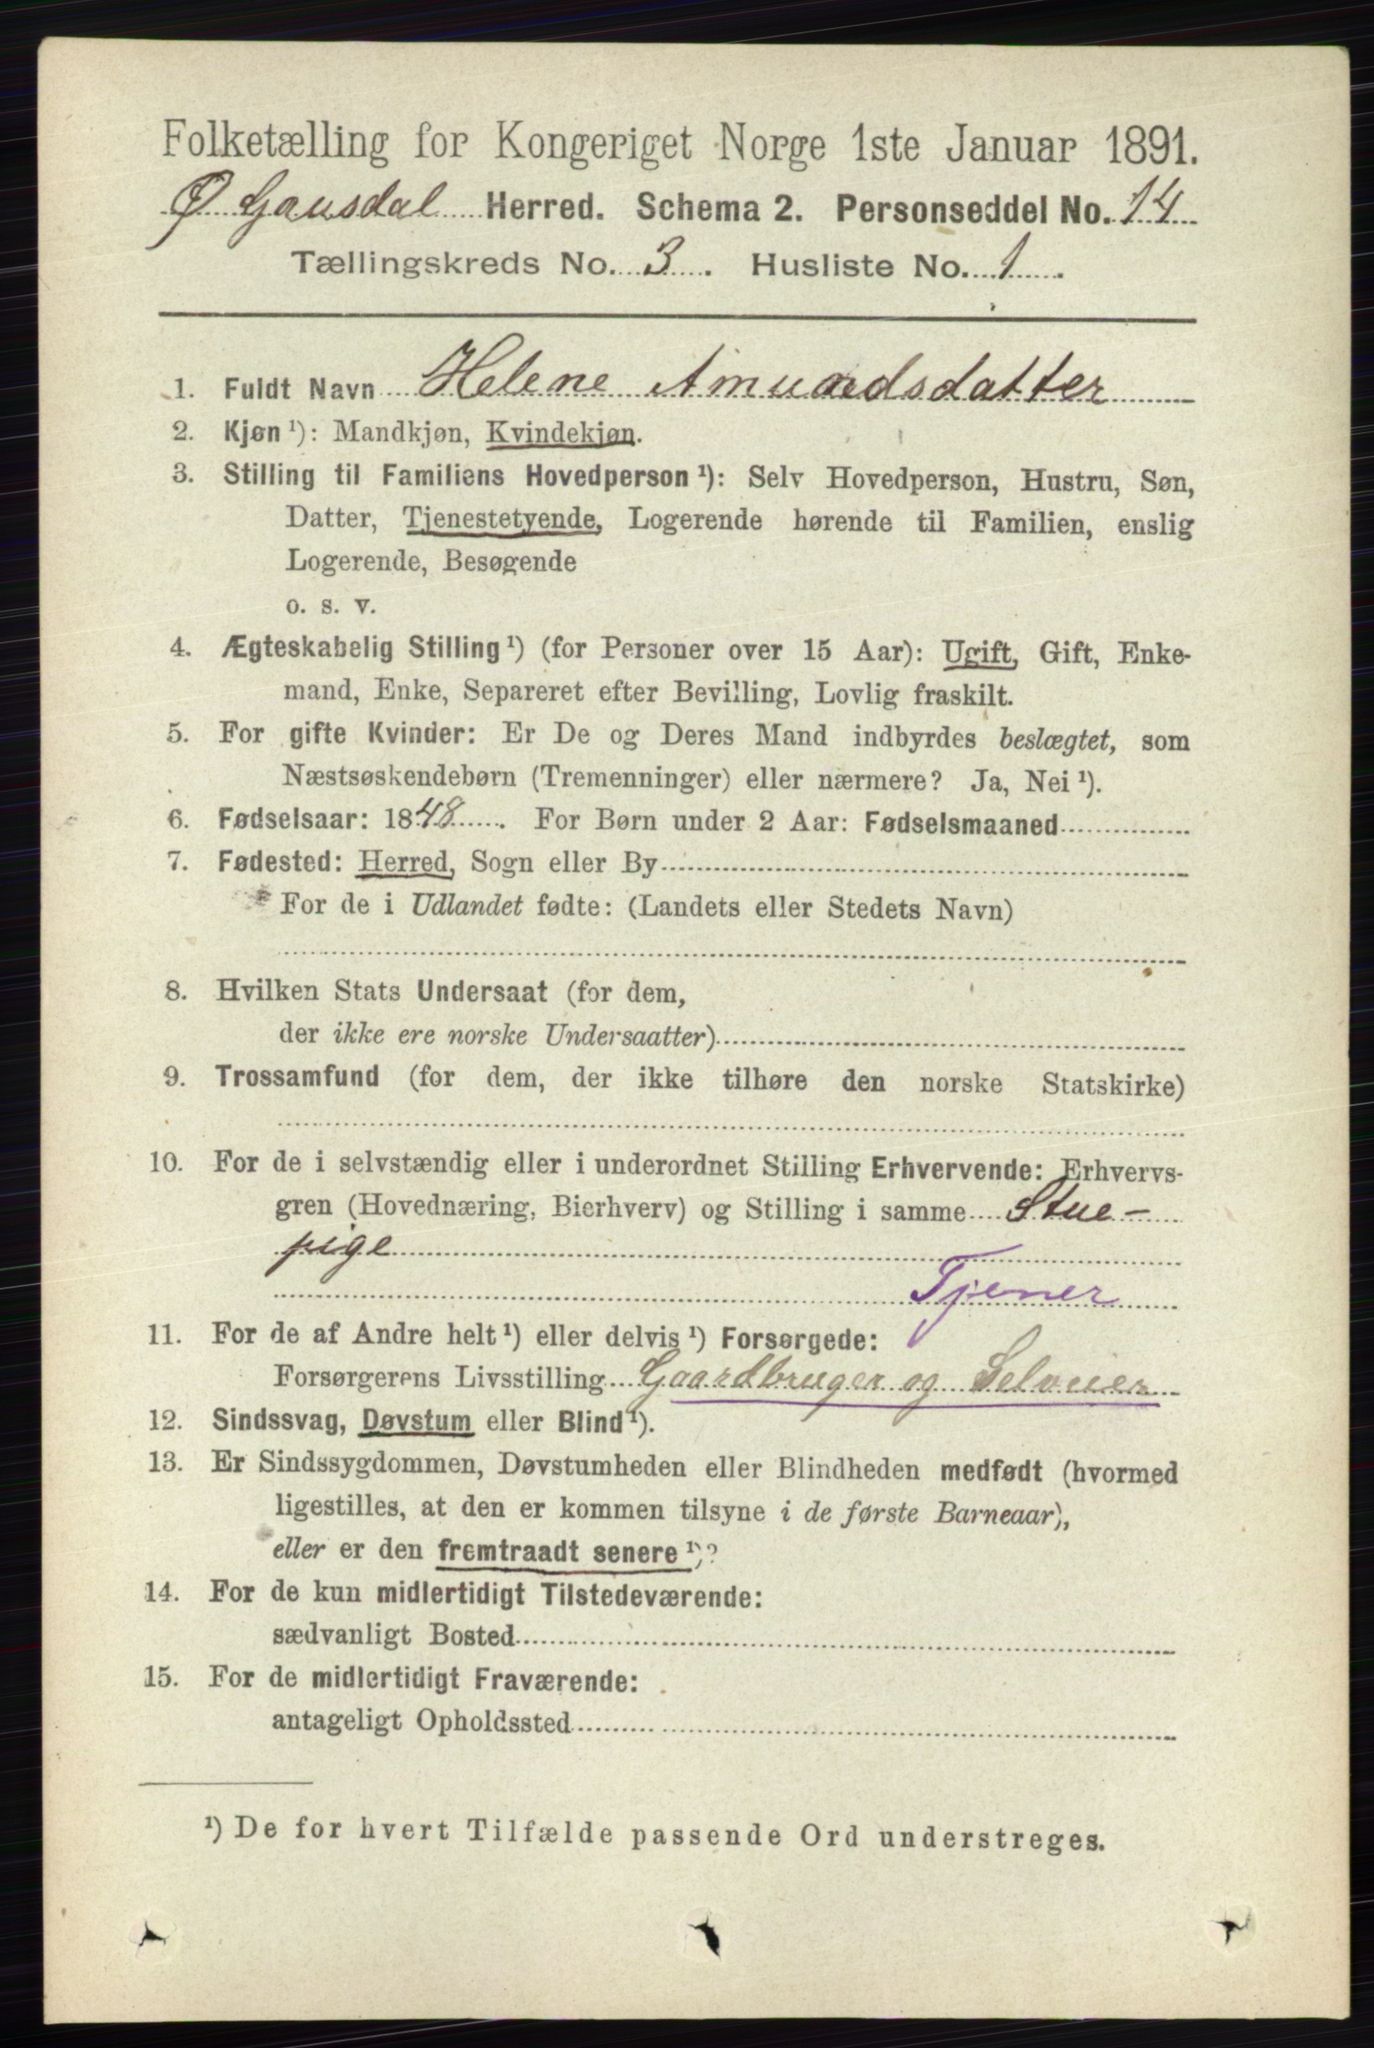 Folketælling for Kongeriget Norge 1ste Januar 1891.
Ø Gausdal Herred. Schema 2. Personseddel No. 14
Tællingskreds No. 3. Husliste No. 1.
1. Fuldt Navn Helene Amundsdatter
2. Kjøn ¹): Mandkjøn, Kvindekjøn.
3. Stilling til Familiens Hovedperson ¹): Selv Hovedperson, Hustru, Søn,
Datter, Tjenestetyende, Logerende hørende til Familien, enslig
Logerende, Besøgende
o. s. v.
4. Ægteskabelig Stilling ¹) (for Personer over 15 Aar): Ugift, Gift, Enke-
mand, Enke, Separeret efter Bevilling, Lovlig fraskilt.
5. For gifte Kvinder: Er De og Deres Mand indbyrdes beslægtet, som
Næstsøskendebørn (Tremenninger) eller nærmere? Ja, Nei ¹).
6. Fødselsaar: 1848. For Børn under 2 Aar: Fødselsmaaned
7. Fødested: Herred, Sogn eller By
For de i Udlandet fødte: (Landets eller Stedets Navn)
8. Hvilken Stats Undersaat (for dem,
der ikke ere norske Undersaatter)
9. Trossamfund (for dem, der ikke tilhøre den norske Statskirke)
10. For de i selvstændig eller i underordnet Stilling Erhvervende: Erhvervs-
gren (Hovednæring, Bierhverv) og Stilling i samme Stue-
pige
Tjener
11. For de af Andre helt ¹) eller delvis ¹) Forsørgede:
Forsørgerens Livsstilling Gaardbruger og Selveier
12. Sindssvag, Døvstum eller Blind ¹).
13. Er Sindssygdommen, Døvstumheden eller Blindheden medfødt (hvormed
ligestilles, at den er kommen tilsyne i de første Barneaar),
eller er den fremtraadt senere ¹)?
14. For de kun midlertidigt Tilstedeværende:
sædvanligt Bosted
15. For de midlertidigt Fraværende:
antageligt Opholdssted
¹) De for hvert Tilfælde passende Ord understreges.